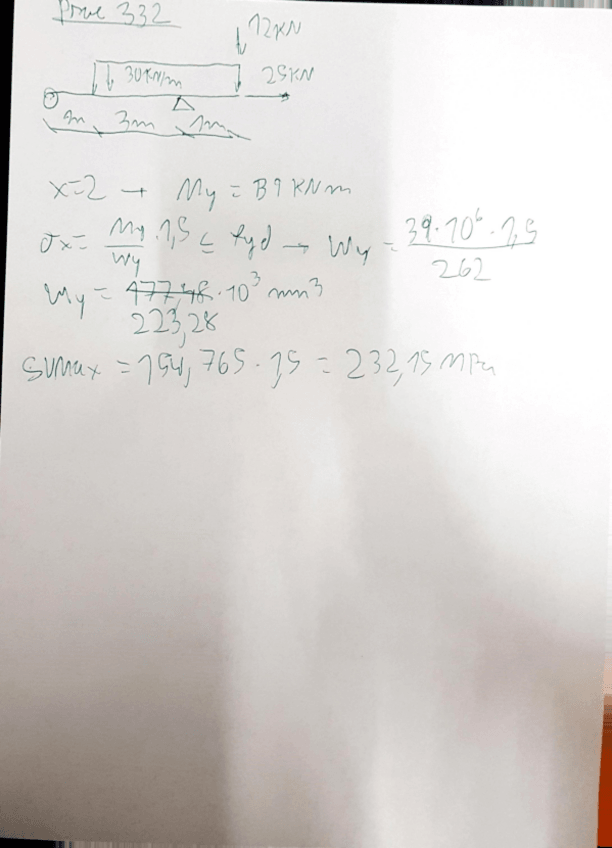 Prove 332
12KN
30KN/m
25KN
3m
x=2 → My = 39 KNm
σx = My/Wy · 1,5 ≤ fyd → Wy = 39·10⁶·1,5/262
Wy = 477,48·10³ mm³
223,28
SVMax = 154,765·1,5 = 232,15 MPa